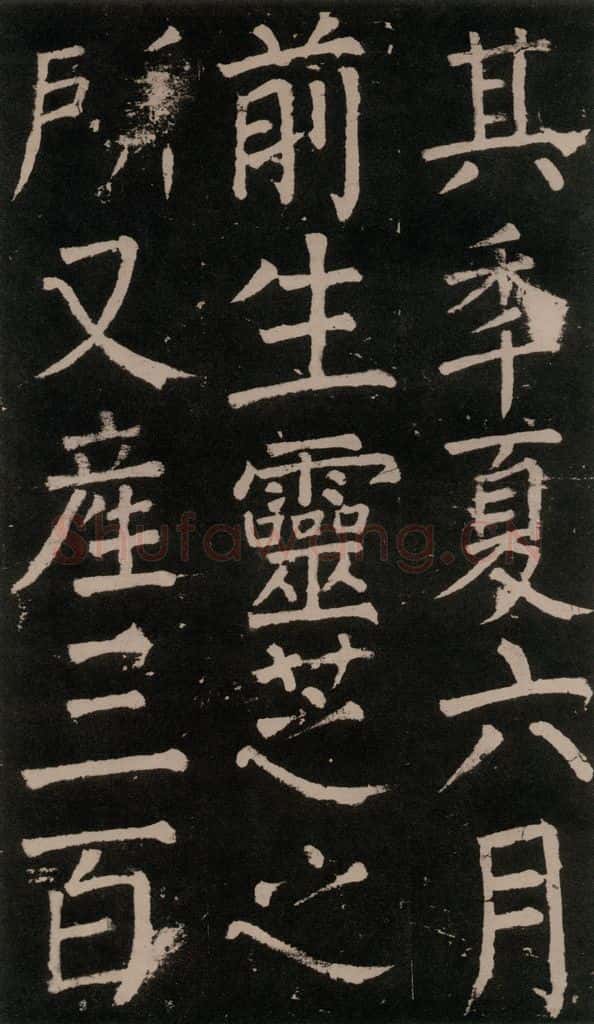 其秊夏六月
前生靈芝之
所又産三百
Shufawang.cn